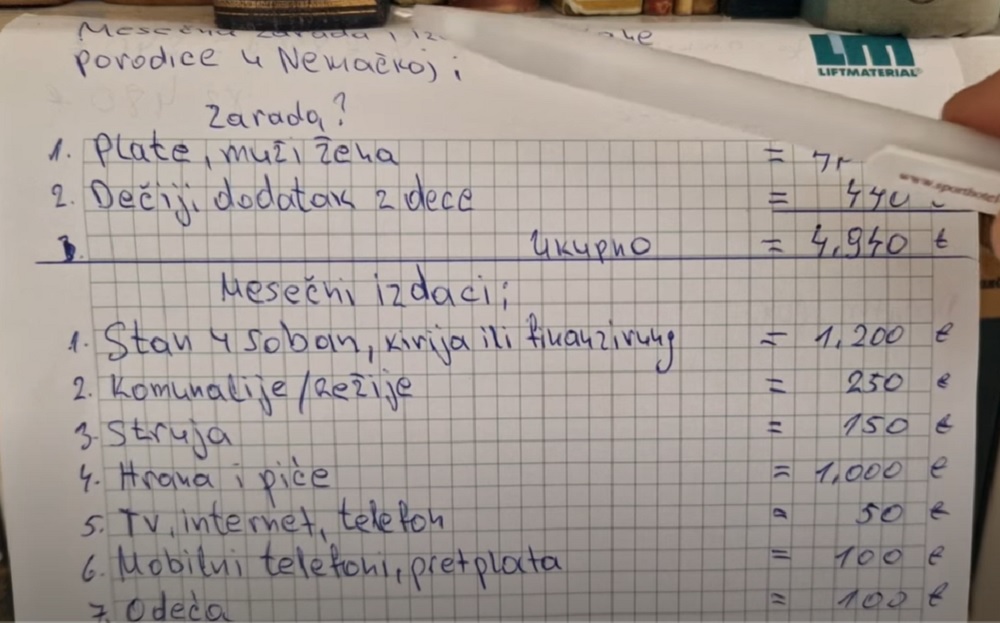 porodice u Nemačkoj;
LM
LIFTMATERIAL
Zarada?
1. Plate, muži žena =
2. Dečiji dodatak 2 dece = 440
3. Ukupno = 4.940 €
Mesečni izdaci;
1. Stan 4 soban, kirija ili finanzirung = 1.200 €
2. Komunalije/Režije = 250 €
3. Struja = 150 €
4. Hrana i piće = 1.000 €
5. TV, internet, telefon = 50 €
6. Mobilni telefoni, pretplata = 100 €
7. Odeća = 100 €